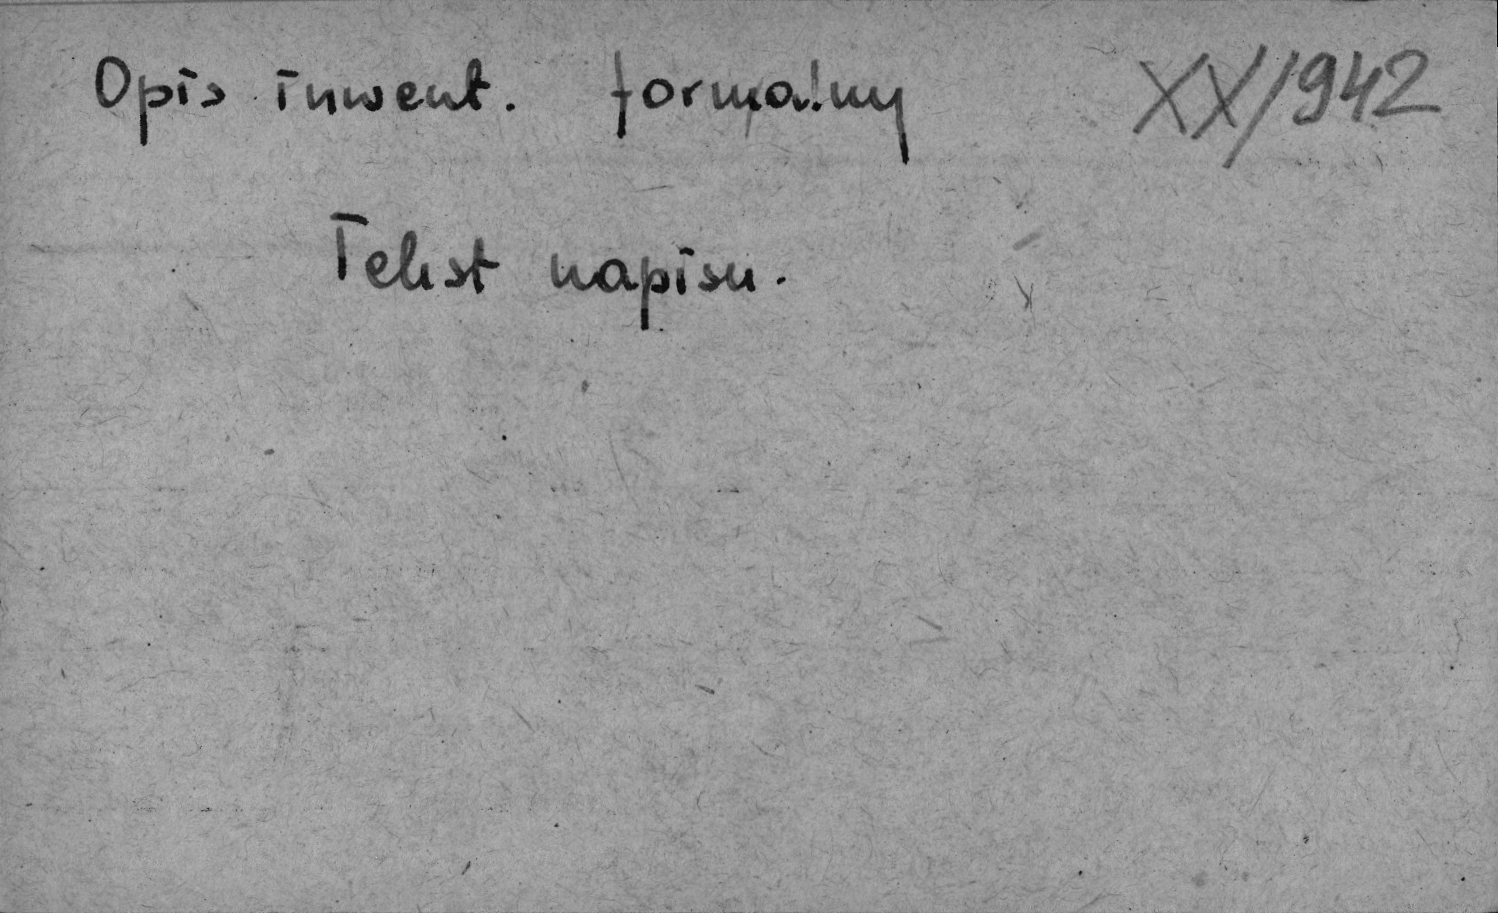 Opis inwent. formalny XX/942
Tekst napisu.